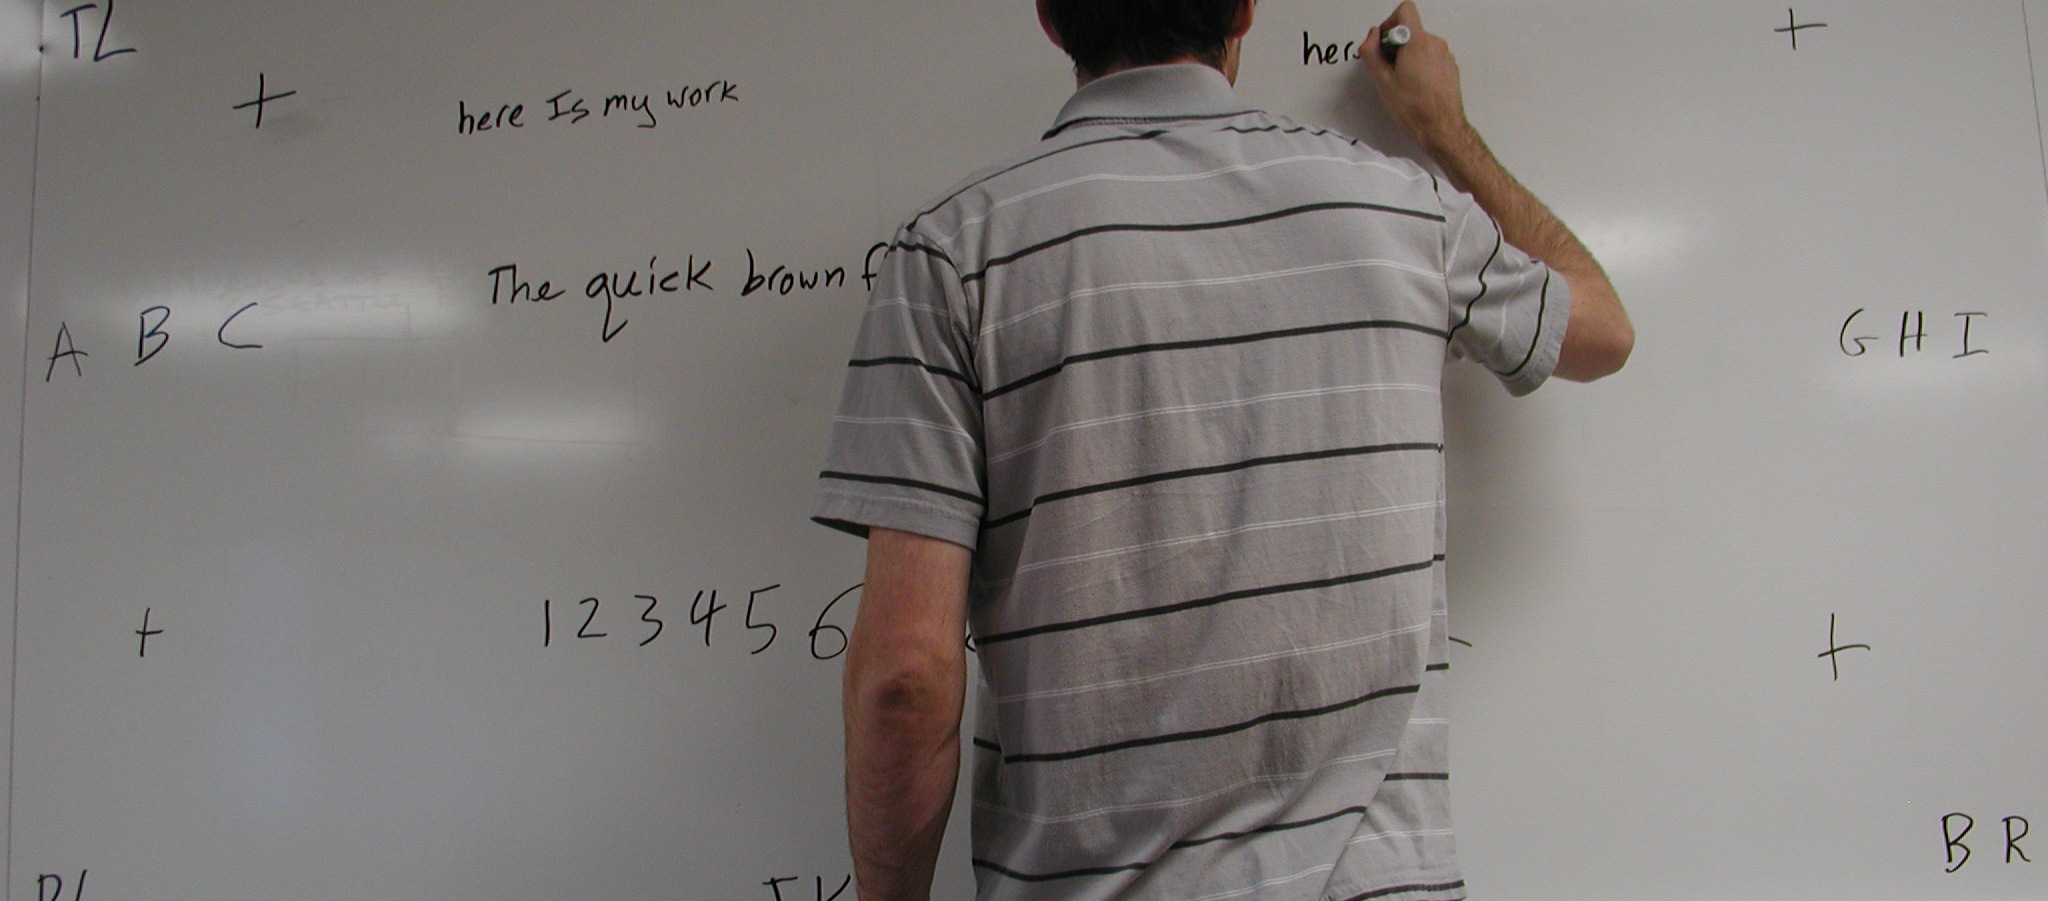 TL
here Is my work
her
The quick brown f
A B C
G H I
1 2 3 4 5 6
B R